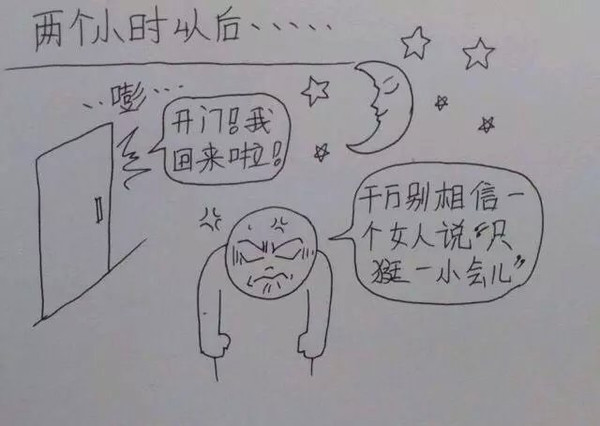 两个小时以后·····
··嘭···
开门!我
回来啦!
千万别相信一
个女人说“只
逛一小会儿”